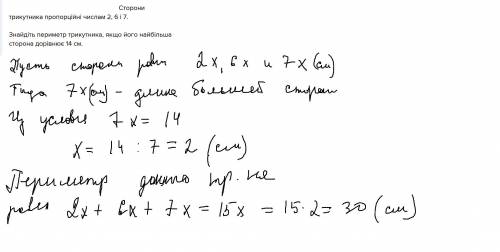 Сторони
трикутника пропорційні числам 2, 6 і 7.
Знайдіть периметр трикутника, якщо його найбільша
сторона дорівнює 14 см.
Пусть стороны равн 2x, 6x и 7x (см)
Тогда 7x(см) - длина большей сторон
Из услови 7x = 14
x = 14 : 7 = 2 (см)
Периметр данно тр-ка
равен 2x + 6x + 7x = 15x = 15·2 = 30 (см)